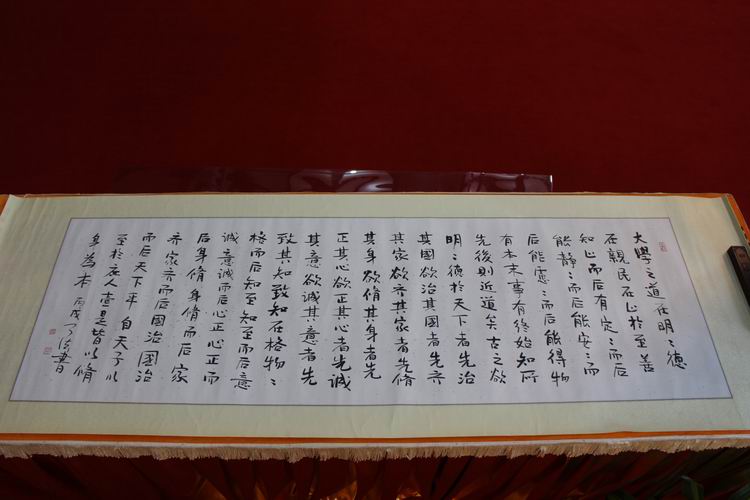 大學之道在明〻德
在親民在止於至善
知止而后有定〻而后
能靜〻而后能安〻而
后能慮〻而后能得物
有本末事有終始知所
先後則近道矣古之欲
明〻德於天下者先治
其國欲治其國者先齐
其家欲齐其家者先脩
其身欲脩其身者先
正其心欲正其心者先誠
其意欲誠其意者先
致其知致知在格物〻
格而后知至知至而后意
誠意誠而后心正心正而
后身脩身脩而后家
齐家齐而后國治國治
而后天下平自天子以
至於庶人壹是皆以脩
身為本 丙戌 書